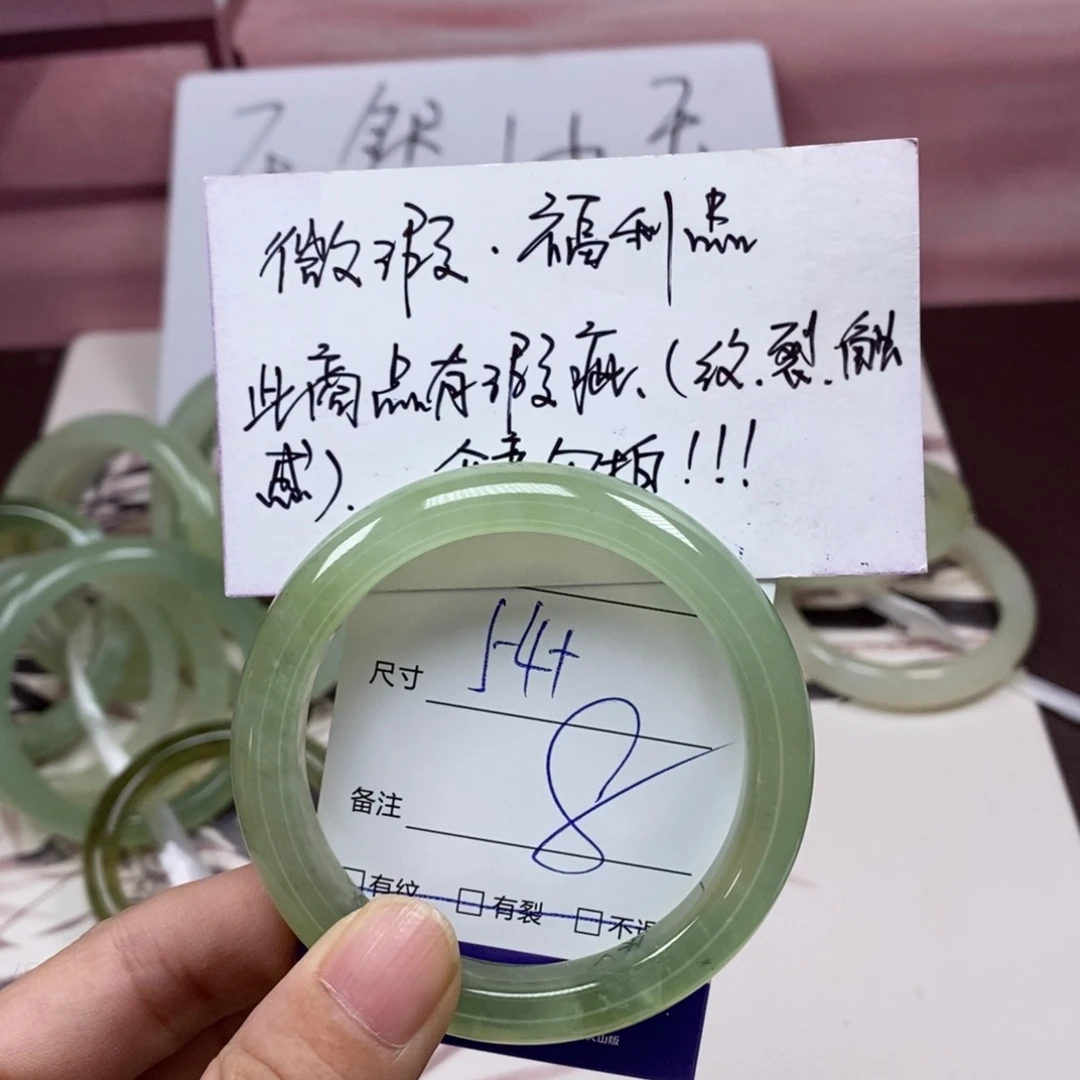 微瑕.福利点
此商点有瑕疵、(纹.裂.触
感). 介意勿拍!!!
尺寸 54+
8
备注
□有纹 □有裂 □不退